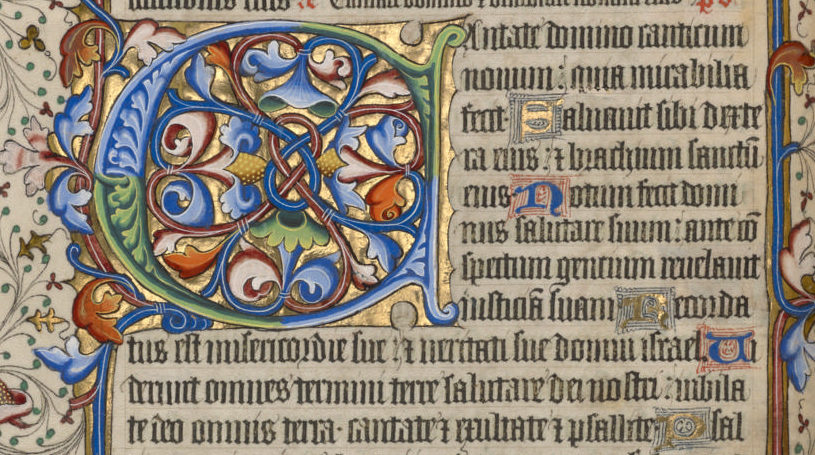 Cantate domino canticum
nouum : quia mirabilia
fecit Saluauit sibi dexte
ra eius : ⁊ brachium sanctū
eius Notum fecit domi
nus salutare suum : ante cō
spectum gentium reuelauit
iusticiā suam Recorda
tus est misericordie sue : ⁊ ueritati sue domui israel Vi
derunt omnes termini terre salutare dei nostri : iubila
te deo omnis terra · cantate ⁊ exultate ⁊ psallite Psal